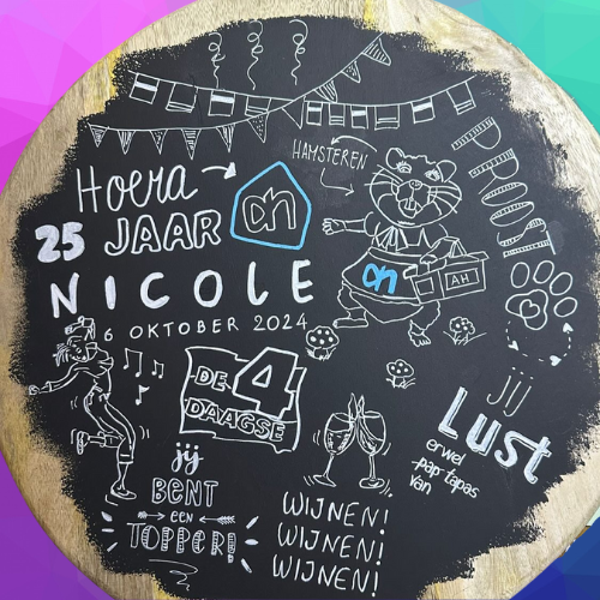 HAMSTEREN
PROOST
Hoera
ah
25 JAAR
NICOLE
6 OKTOBER 2024
ah
AH
DE 4
DAAGSE
jij
LUST
erwel
pap tapas
van
jij
BENT
een
TOPPER!
WIJNEN!
WIJNEN!
WIJNEN!